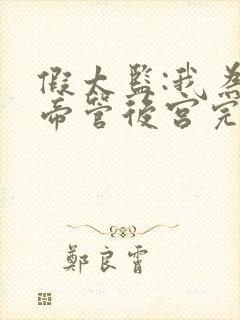 假太監:我為
帝管後宮完
鄭良霄